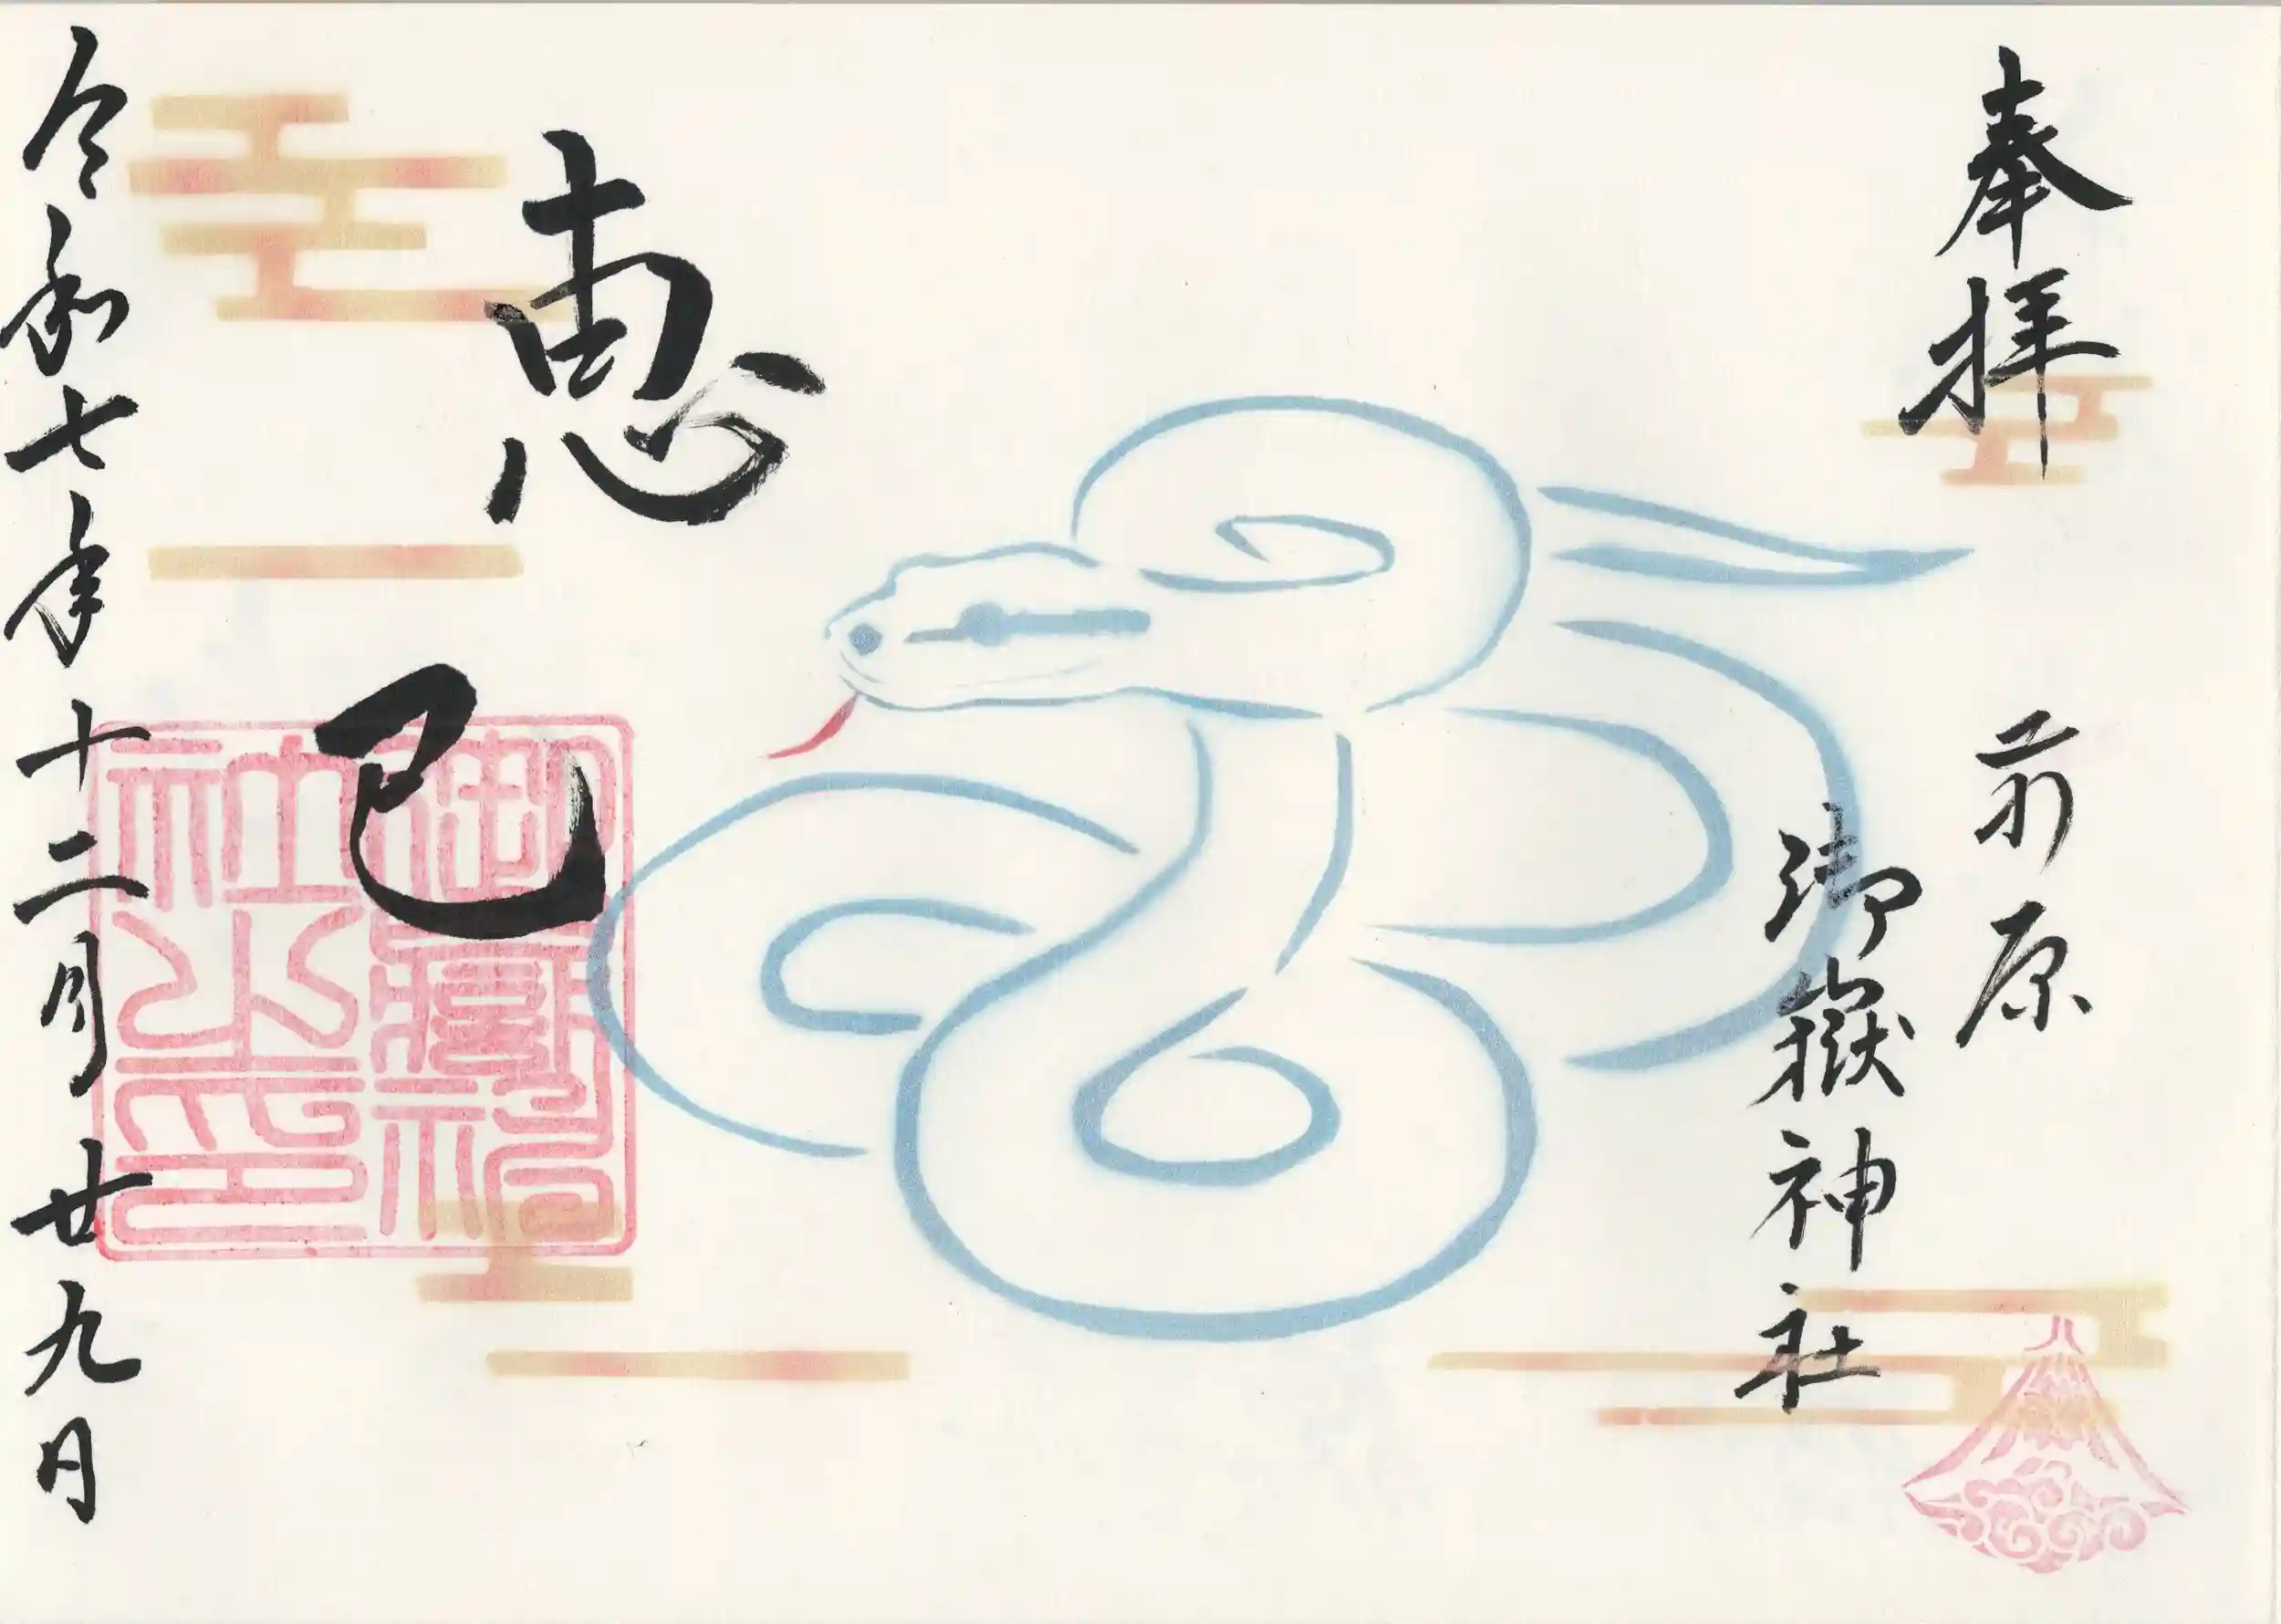 奉拝
前原
御嶽神社
恵巳
御嶽神社之印
令和七年十二月廿九日